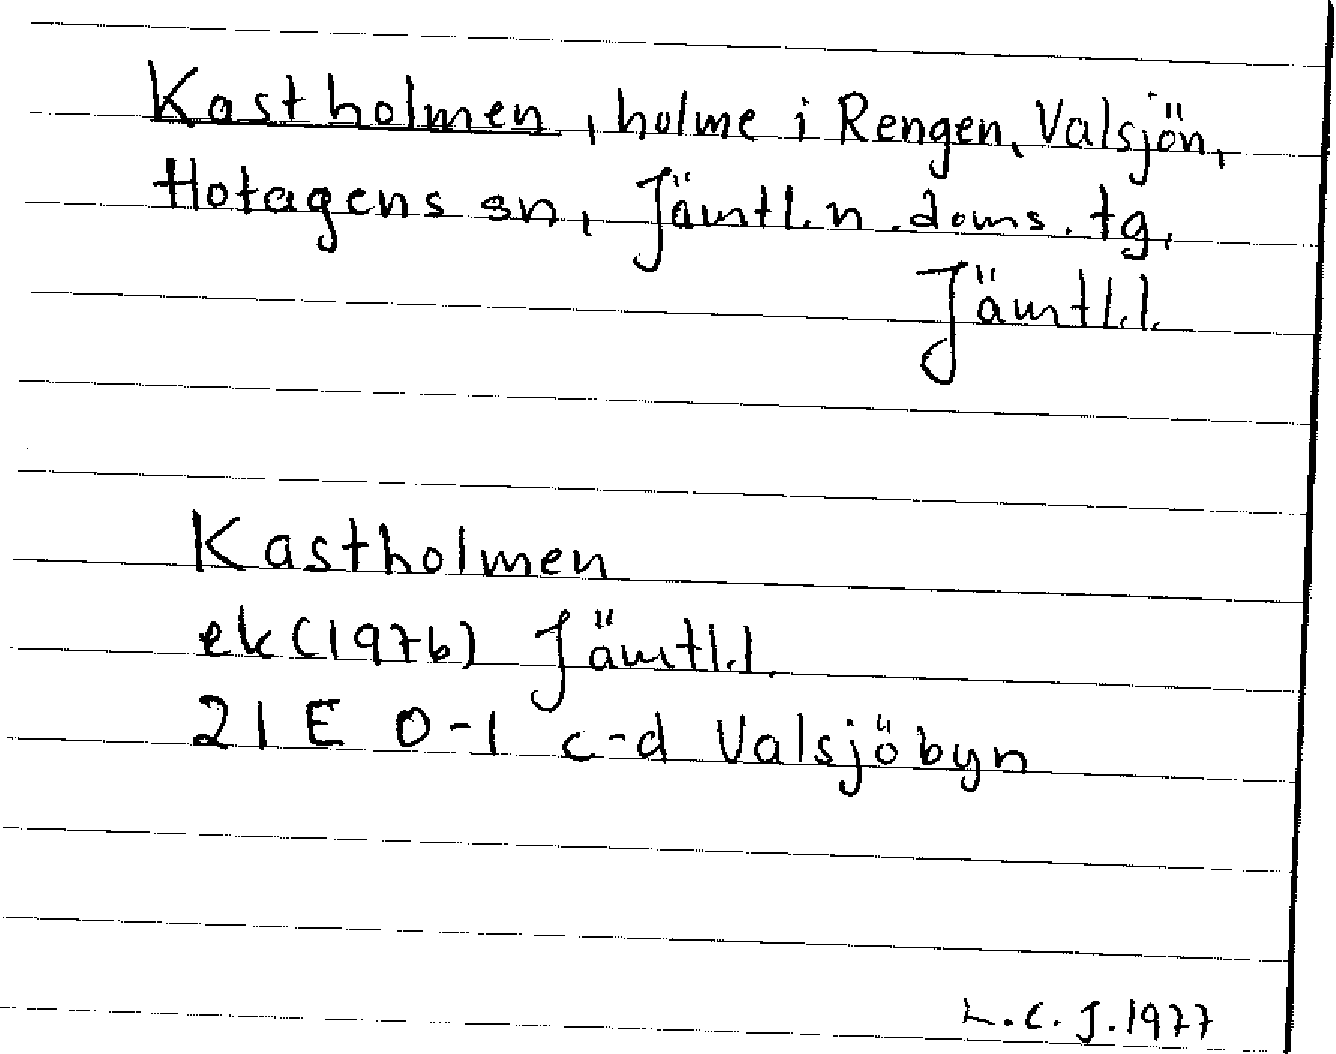 Kastholmen, holme i Rengen, Valsjön,
Hotagens sn, Jämtl.n.doms.tg,
Jämtl.l.
Kastholmen
ek(1976) Jämtl.l.
21 E 0-1 c-d Valsjöbyn
L.C.J.1977